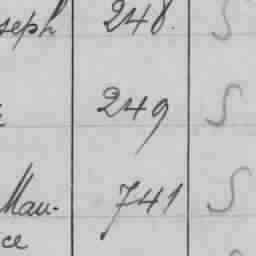 seph 248. S
249 S
Mau- 741 S
ce